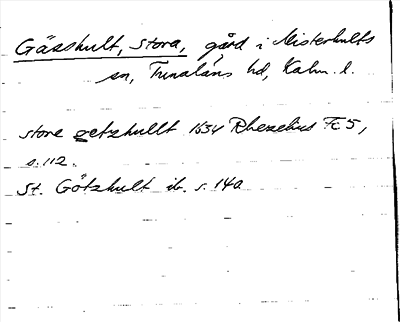 Gässhult, stora, gård i Misterhults
sn, Tunaläns hd, Kalm. l.
store getzhullt 1634 Rhezelius Fc 5,
s. 112.
St. Götzhult ib. s. 14a